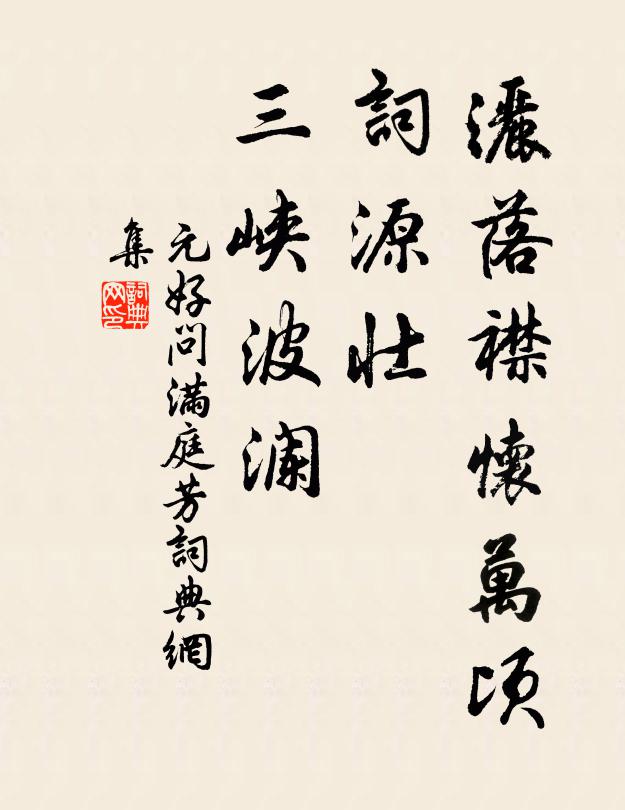 灑落襟懷萬頃
詞源壯
三峽波瀾
元好問滿庭芳詞典網
集
詞典
网印